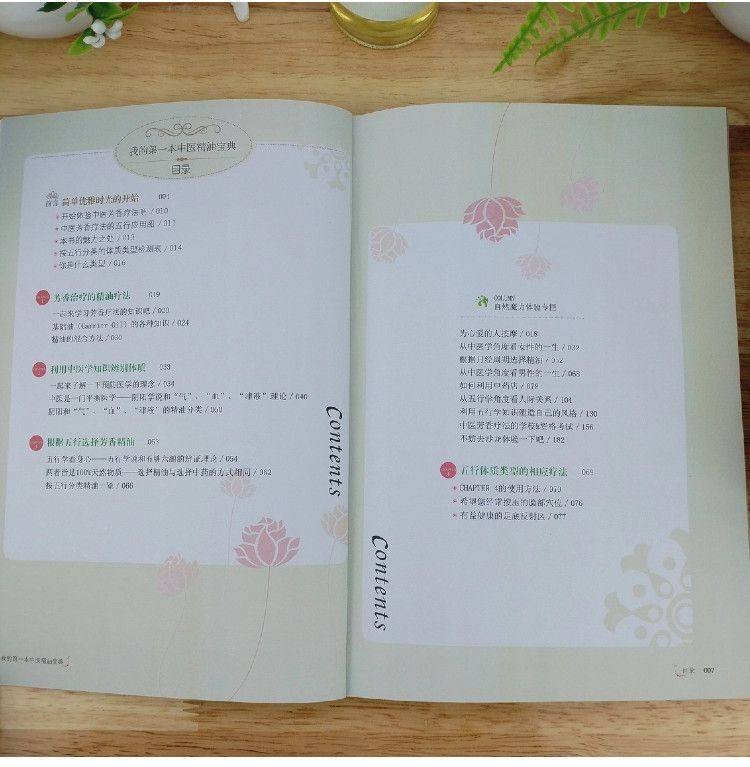 我的第一本中医精油宝典
目录
前言 简单优雅时光的开始 001
开始体验中医芳香疗法吧 / 010
中医芳香疗法的五行应用图 / 011
本书的魅力之处 / 013
按五行分类的体质类型检测表 / 014
你是什么类型 / 016
芳香治疗的精油疗法 019
一起来学习芳香疗法的知识吧 / 020
基础油 (Carrier Oil) 的各种知识 / 024
精油的混合方法 / 030
利用中医学知识辨别体质 033
一起来了解一下预防医学的理念 / 034
中医是一门平衡医学——阴阳学说和“气”、“血”、“津液”理论 / 040
阴阳和“气”、“血”、“津液”的精油分类 / 050
根据五行选择芳香精油 053
五行学看身心——五行学说和脏腑六腑的辨证理论 / 054
两者皆是100%天然物质——选择精油与选择中药的方式相同 / 062
按五行分类精油一览 / 066
Contents
我的第一本中医精油宝典
COLUMN
自然魔力体验专栏
为心爱的人按摩 / 018
从中医学角度看女性的一生 / 032
根据月经周期选择精油 / 052
从中医学角度看男性的一生 / 068
如何利用中药店 / 078
从五行学角度看人际关系 / 104
利用五行学知识塑造自己的风格 / 130
中医芳香疗法的学校&资格考试 / 156
不妨去沙龙体验一下吧 / 182
五行体质类型的相应疗法 069
CHAPTER 4的使用方法 / 070
希望您经常按压的脸部穴位 / 076
有益健康的足底反射区 / 077
Contents
目录 007